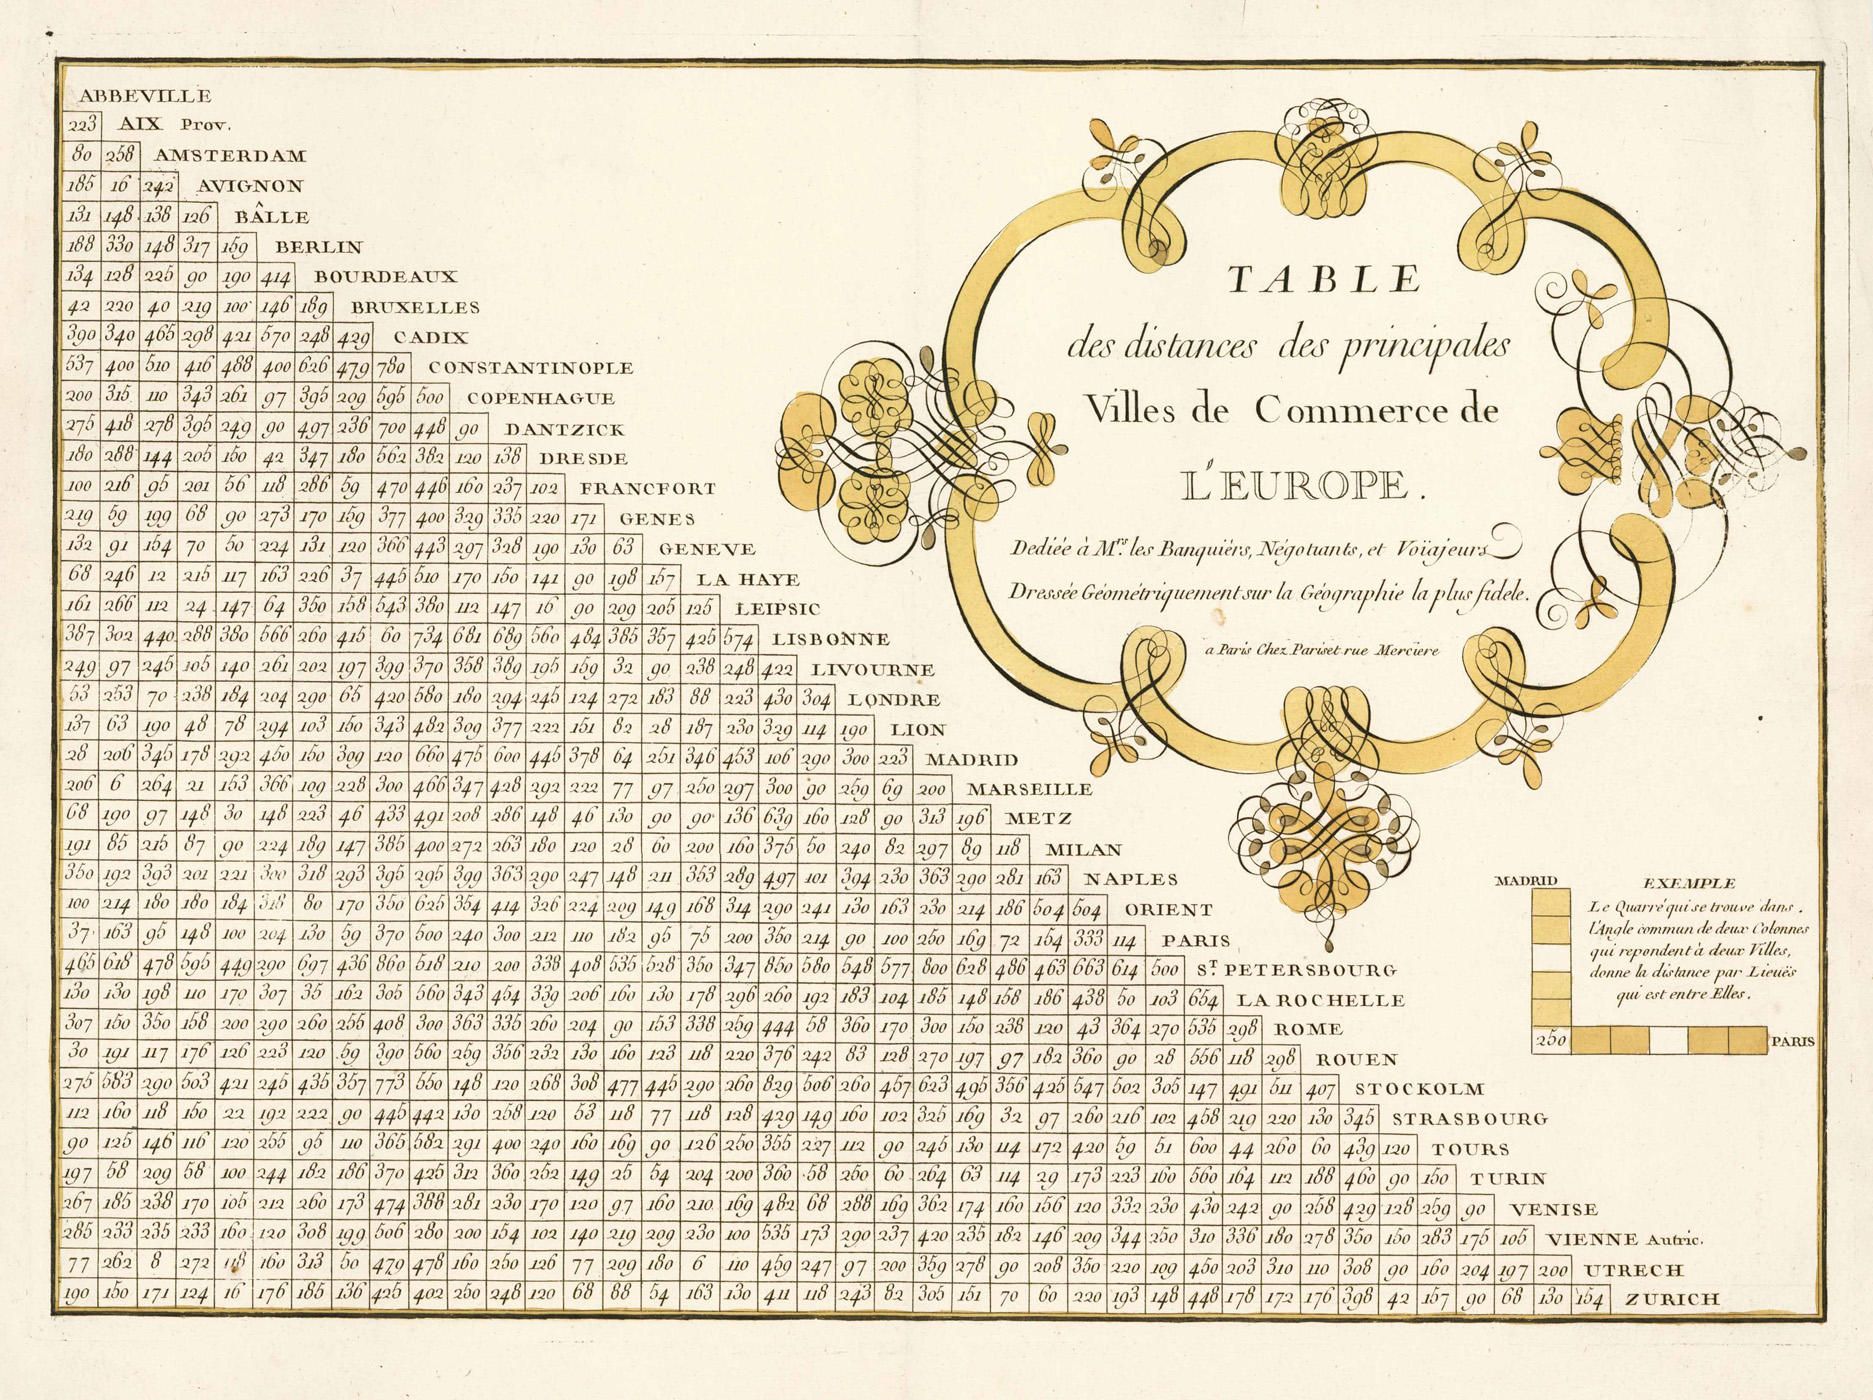 ABBEVILLE
223 AIX Prov.
80 258 AMSTERDAM
185 16 242 AVIGNON
131 148 138 126 BÂLLE
188 330 148 317 159 BERLIN
134 128 225 90 190 414 BOURDEAUX
42 220 40 219 100 146 189 BRUXELLES
390 340 465 298 421 570 248 429 CADIX
537 400 510 416 488 400 626 479 780 CONSTANTINOPLE
200 315 110 343 261 97 395 209 595 500 COPENHAGUE
275 418 278 395 249 90 497 236 700 448 90 DANTZICK
180 288 144 205 150 42 347 180 562 382 120 138 DRESDE
100 216 95 201 56 118 286 59 470 446 160 237 102 FRANCFORT
219 59 199 68 90 273 170 159 377 400 329 335 220 171 GENES
132 91 154 70 50 224 131 120 366 443 297 328 190 130 63 GENEVE
68 246 12 215 117 163 226 37 445 510 170 150 141 90 198 157 LA HAYE
161 266 112 24 147 64 350 158 543 380 112 147 16 90 209 205 125 LEIPSIC
387 302 440 288 380 566 260 415 60 734 681 689 560 484 385 357 425 574 LISBONNE
249 97 245 105 140 261 202 197 399 370 358 389 195 159 32 90 238 248 422 LIVOURNE
53 253 70 238 184 204 290 65 420 580 180 294 245 124 272 183 88 223 430 304 LONDRE
137 63 190 48 78 294 103 150 343 482 309 377 222 151 82 28 187 230 329 114 190 LION
28 206 345 178 292 450 150 309 120 660 475 600 445 378 64 251 346 453 106 290 300 223 MADRID
206 6 264 21 153 366 109 228 300 466 347 428 292 222 77 97 250 297 300 90 259 69 200 MARSEILLE
68 190 97 148 30 148 223 46 433 491 208 286 148 46 130 90 90 136 639 160 128 90 313 196 METZ
191 85 215 87 90 224 189 147 385 400 272 263 180 120 28 60 200 160 375 50 240 82 297 89 118 MILAN
350 192 393 201 221 300 318 293 395 295 399 363 290 247 148 211 353 289 497 101 394 230 363 290 281 163 NAPLES
100 214 180 180 184 318 80 170 350 625 354 414 326 224 209 149 168 314 290 241 130 163 230 214 186 504 504 ORIENT
37 163 95 148 100 204 130 59 370 500 240 300 212 110 182 95 75 200 350 214 90 100 250 169 72 154 333 114 PARIS
465 618 478 595 449 290 697 436 860 518 210 200 338 408 535 528 350 347 850 580 548 577 800 628 486 463 663 614 500 S.T PETERSBOURG
130 130 198 110 170 307 35 162 305 560 343 454 339 206 160 130 178 296 260 192 183 104 185 148 158 186 438 50 103 654 LA ROCHELLE
307 150 350 158 200 290 260 255 408 300 363 335 260 204 90 153 338 259 444 58 360 170 300 150 238 120 43 364 270 535 298 ROME
30 191 117 176 126 223 120 59 390 560 259 356 232 130 160 123 118 220 376 242 83 128 270 197 97 182 360 90 28 556 118 298 ROUEN
275 583 290 503 421 245 435 357 773 550 148 120 268 308 477 445 290 260 829 506 260 457 623 495 356 425 547 502 305 147 491 511 407 STOCKOLM
112 160 118 150 22 192 222 90 445 442 130 258 120 53 118 77 118 128 429 149 160 102 325 169 32 97 260 216 102 458 219 220 130 345 STRASBOURG
90 125 146 116 120 255 95 110 365 582 291 400 240 160 169 90 126 250 355 227 112 90 245 130 114 172 420 59 51 600 44 260 60 439 120 TOURS
197 58 209 58 100 244 182 186 370 425 312 360 252 149 25 54 204 200 360 58 250 60 264 63 114 29 173 223 160 560 164 112 188 460 90 150 TURIN
267 185 238 170 105 212 260 173 474 388 281 230 170 120 97 160 210 169 482 68 288 169 362 174 160 156 120 332 230 430 242 90 258 429 128 259 90 VENISE
285 233 235 233 160 120 308 199 506 280 200 154 102 140 219 209 230 100 535 173 290 237 420 235 182 146 209 344 250 310 336 180 278 350 150 283 175 105 VIENNE Autric.
77 262 8 272 118 160 313 50 479 478 160 250 126 77 209 180 6 110 459 247 97 200 359 278 90 208 350 220 109 450 203 310 110 308 90 160 204 197 200 UTRECH
190 150 171 124 16 176 185 136 425 402 250 248 120 68 88 54 163 130 411 118 243 82 305 151 70 60 220 193 148 448 178 172 176 398 42 157 90 68 130 154 ZURICH
TABLE
des distances des principales
Villes de Commerce de
L'EUROPE.
Dediée à M.rs les Banquiérs, Négotiants, et Voïajeurs
Dressée Géométriquement sur la Géographie la plus fidele.
a Paris Chez Pariset rue Merciere
MADRID
EXEMPLE
Le Quarré qui se trouve dans
l'Angle commun de deux Colonnes
qui repondent à deux Villes,
donne la distance par Lieuës
qui est entre Elles.
250 PARIS